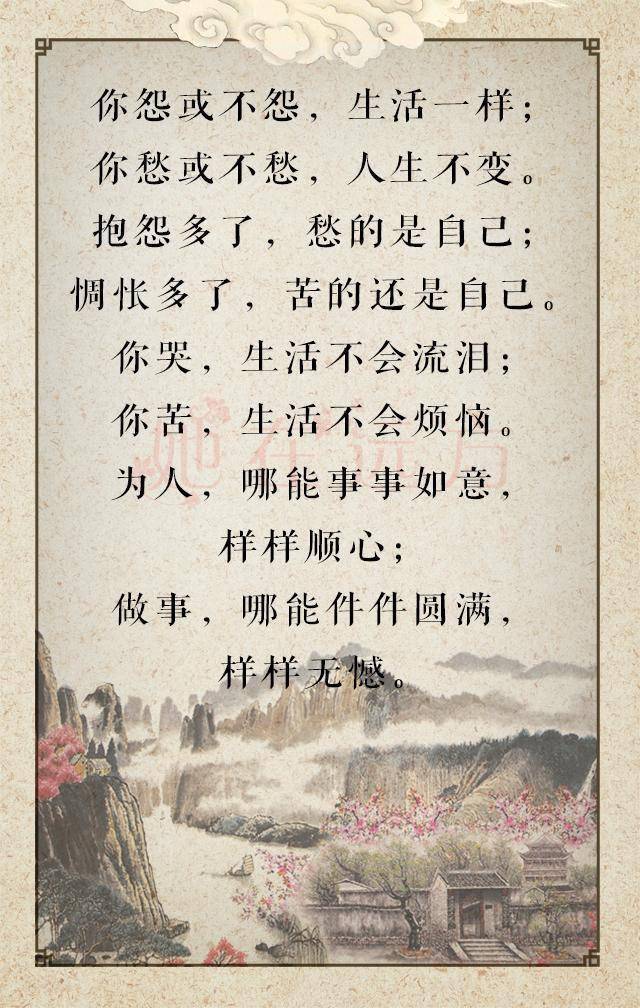 你怨或不怨，生活一样；
你愁或不愁，人生不变。
抱怨多了，愁的是自己；
惆怅多了，苦的还是自己。
你哭，生活不会流泪；
你苦，生活不会烦恼。
为人，哪能事事如意，
样样顺心；
做事，哪能件件圆满，
样样无憾。